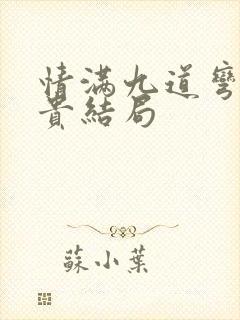 情满九道弯
貴結局
蘇小葉